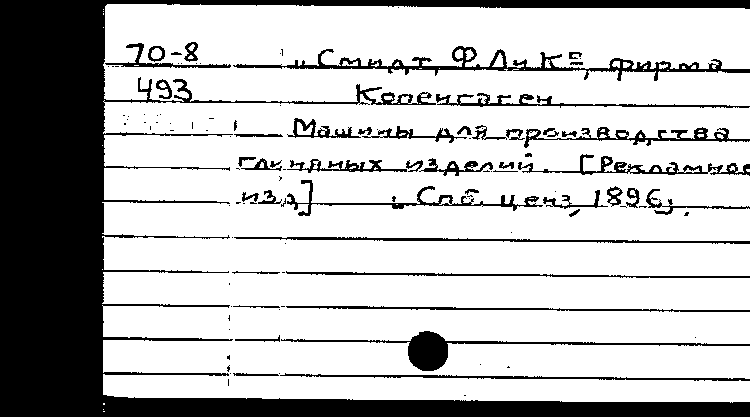 70-8 „Смидт, Ф. Л и Кº, фирма
493 Копенгаген.
Машины для производства
глиняных изделий. [Рекламное
изд.] „ Спб. ценз, 1896;.